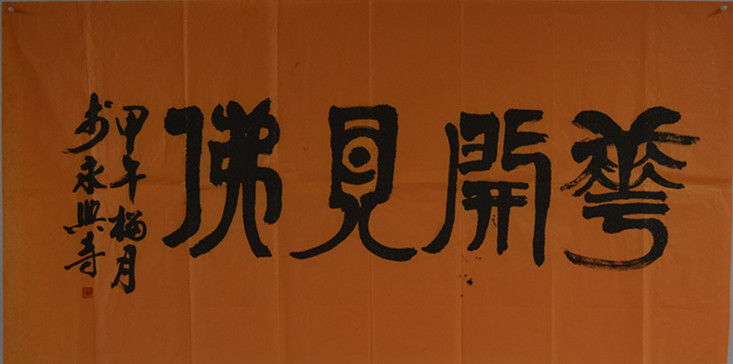 華開見佛
甲午榴月
於永興寺